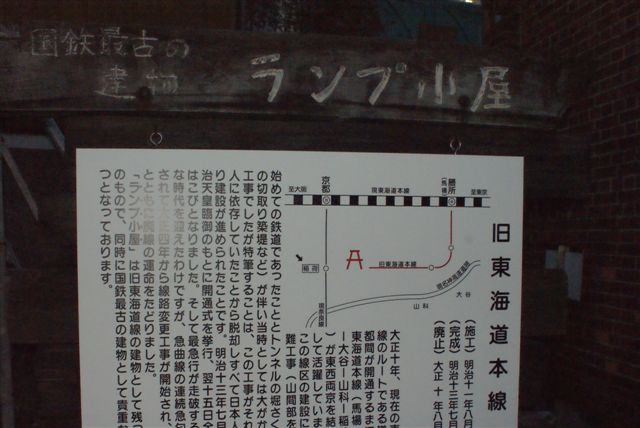 国鉄最古の
建物
ランプ小屋
旧東海道本線
(施工) 明治十一年八月
(完成) 明治十三年七月
(廃止) 大正 十 年八月
至大阪
京都
現東海道本線
膳所
(馬場)
至東京
稲荷
旧東海道本線
現名神高速道路
大谷
山科
現奈良線
大正十年、現在の東
線のルートである
都間が開通するま
東海道本線(馬場
ー大谷ー山科ー稲
が東西両京を結
して活躍していま
この線区の建設に
難工事(山間部を
始めての鉄道であったこととトンネルの堀さく
の切取り築堤など)が伴い当時としては大がか
工事でしたが特筆することは、この工事がそれ
人に依存していたことから脱却しすべて日本人
り建設が進められたことです。明治十三年七月
治天皇臨御のもとに開通式を挙行、翌十五日全
はこびとなりました。そして最急行が走破する
な時代を迎えたわけですが、急曲線の連続急勾
されて大正四年から線路変更工事が開始され、
とともに廃線の運命をたどりました。
「ランプ小屋」は旧東海道線の建物として残っ
のもので、同時に国鉄最古の建物として貴重
つとなっております。